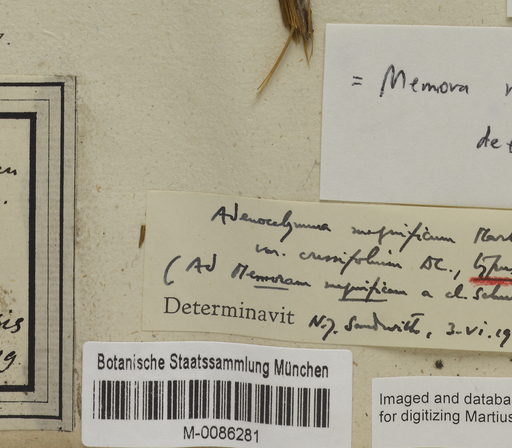 = Memora
de
Adenocalymna magnificum Mart
var. crassifolium DC., typus
(Ad Memoram magnificam a cl. Schum
Determinavit N.Y. Sandwith, 3.vi.19
Botanische Staatssammlung München
M-0086281
Imaged and databa
for digitizing Martius
sis